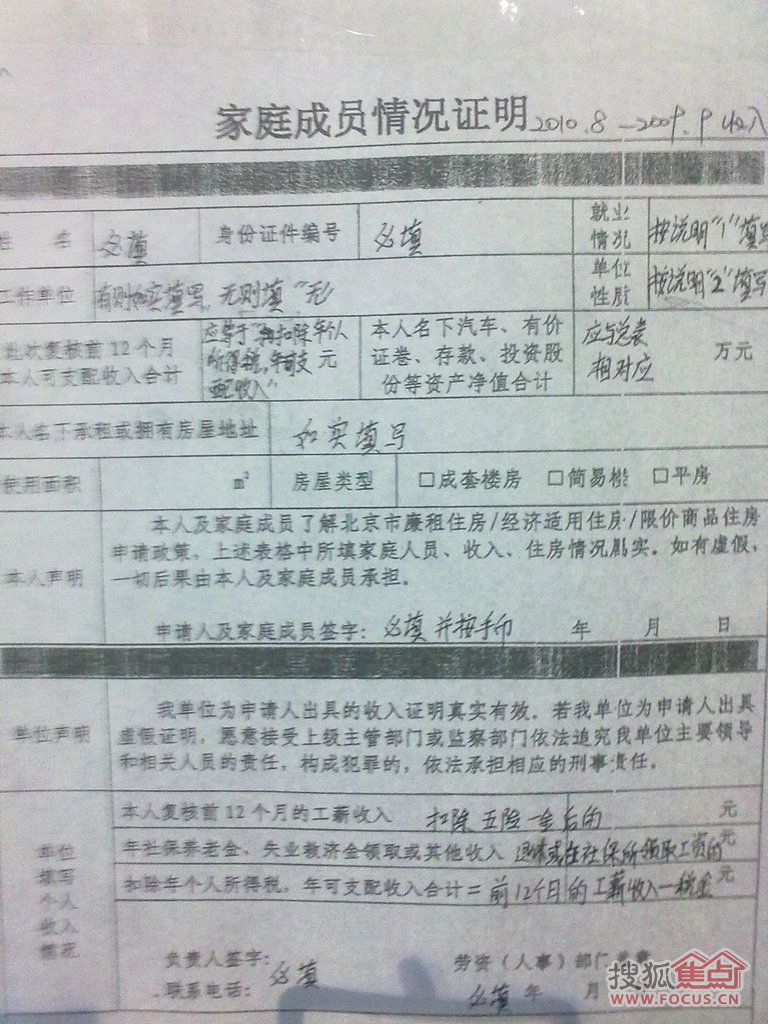 家庭成员情况证明 2010.8—2009.9收入
姓 名 必填 身份证件编号 必填 就业情况 按说明"1"填写
工作单位 有则如实填写,无则填"无" 单位性质 按说明"2"填写
此次复核前12个月 应等于"扣除年个人 本人名下汽车、有价 应与总表
本人可支配收入合计 所得税,年可支 元 证卷、存款、投资股 相对应 万元
配收入" 份等资产净值合计
本人名下承租或拥有房屋地址 如实填写
使用面积 m² 房屋类型 □成套楼房 □简易楼 □平房
本人及家庭成员了解北京市廉租住房/经济适用住房/限价商品住房
申请政策。上述表格中所填家庭人员、收入、住房情况属实。如有虚假,
本人声明 一切后果由本人及家庭成员承担。
申请人及家庭成员签字:必填并按手印 年 月 日
我单位为申请人出具的收入证明真实有效。若我单位为申请人出具
单位声明 虚假证明,愿意接受上级主管部门或监察部门依法追究我单位主要领导
和相关人员的责任。构成犯罪的,依法承担相应的刑事责任。
单位填写个人收入情况
本人复核前12个月的工薪收入 扣除五险一金后的 元
年社保养老金、失业救济金领取或其他收入 退休或在社保所领取工资的 元
扣除年个人所得税,年可支配收入合计=前12个月的工薪收入—税金 元
负责人签字: 必填 劳资(人事)部门
联系电话: 必填 年 月
搜狐焦点
WWW.FOCUS.CN